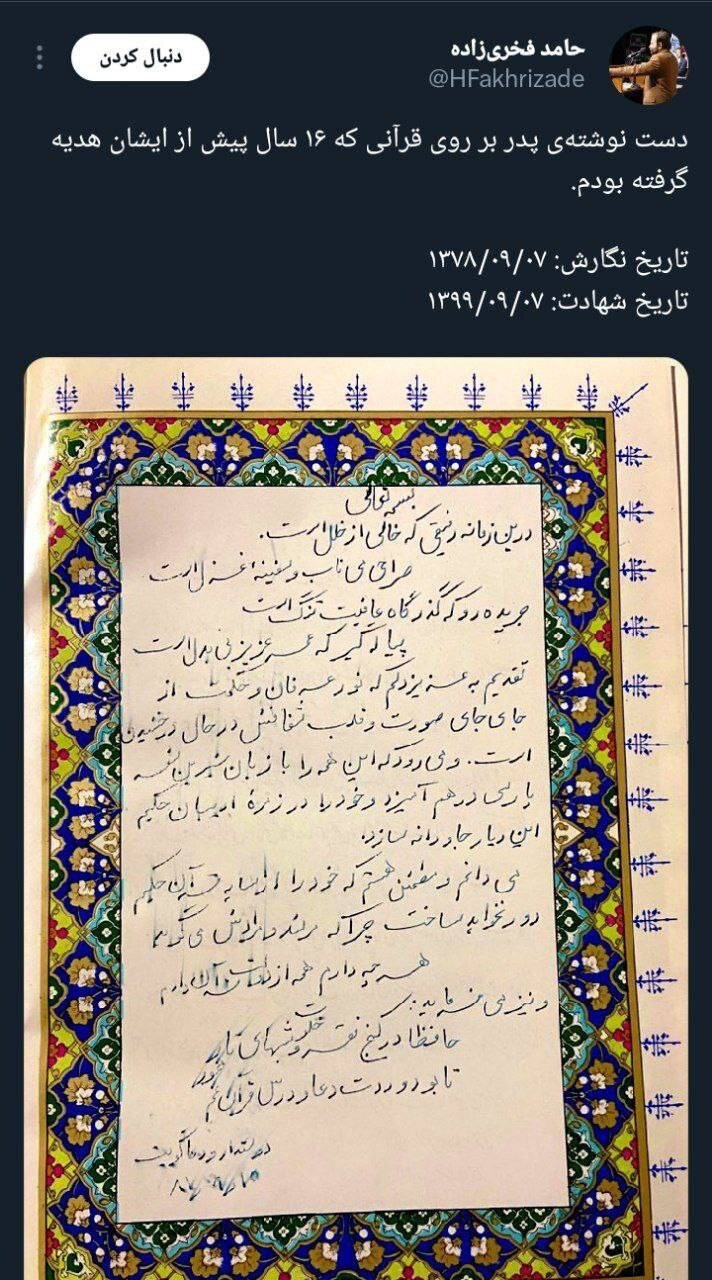 حامد فخری‌زاده
@HFakhrizade
دنبال کردن
دست نوشته‌ی پدر بر روی قرآنی که ۱۶ سال پیش از ایشان هدیه
گرفته بودم.
تاریخ نگارش: ۱۳۷۸/۰۹/۰۷
تاریخ شهادت: ۱۳۹۹/۰۹/۰۷
بسمه تعالی
درین زمانه رفیقی که خالی از خلل است.
صراحی می ناب و سفینه غزل است
جریده رو که گذرگاه عافیت تنگ است
پیاله گیر که عمر عزیز بی بدل است
تقدیم به عزیز دلم که نور عرفان و حکمت از
جای جای صورت و قلب شفافش در حال درخشیدن
است. و می رود که این همه را با زبان شیرین
پارسی در هم آمیزد و خود را در زمرۀ ادیبان حکیم
این دیار جاودانه سازد.
می دانم و مطمئن هستم که خود را از سایه قرآن حکیم
دور نخواهد ساخت چرا که
هر چه دارم همه از دولت قرآن دارم
و نیز می فرماید:
حافظا در کنج فقر و خلوت شبهای تار
تا بود وردت دعا و درس قرآن غم مخور
دوستدار و دعاگویت